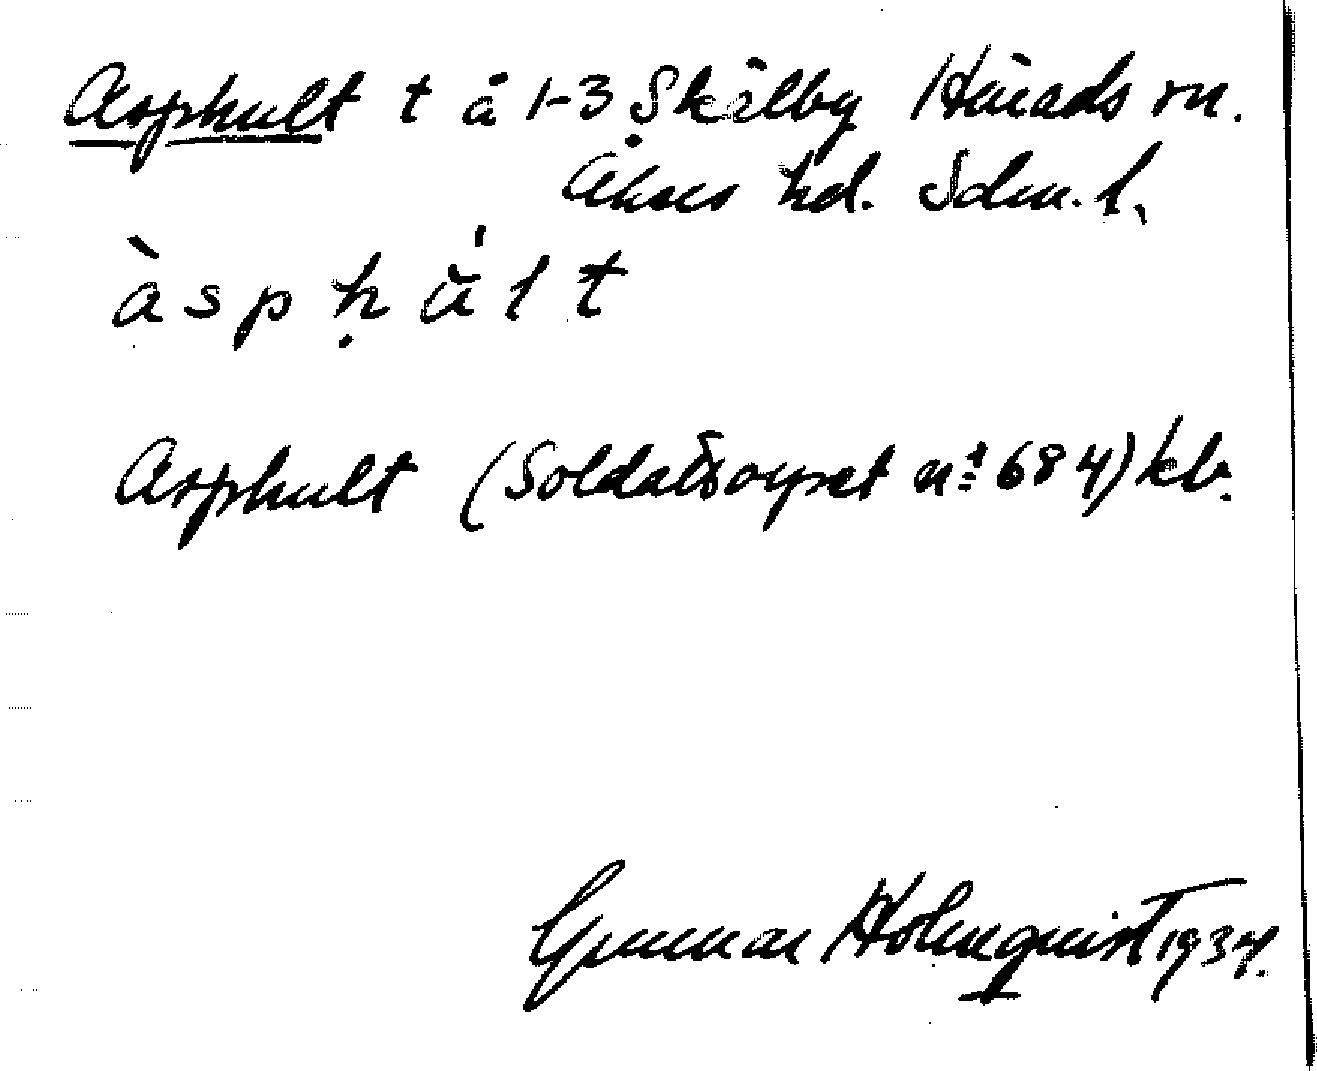 Asphult t å 1-3 Skälby Härads sn.
Åkers hd. Sdm. l.
àspḥúlt
Asphult (Soldattorpet nr 684) kb.
Gunnar Holmquist 1934.